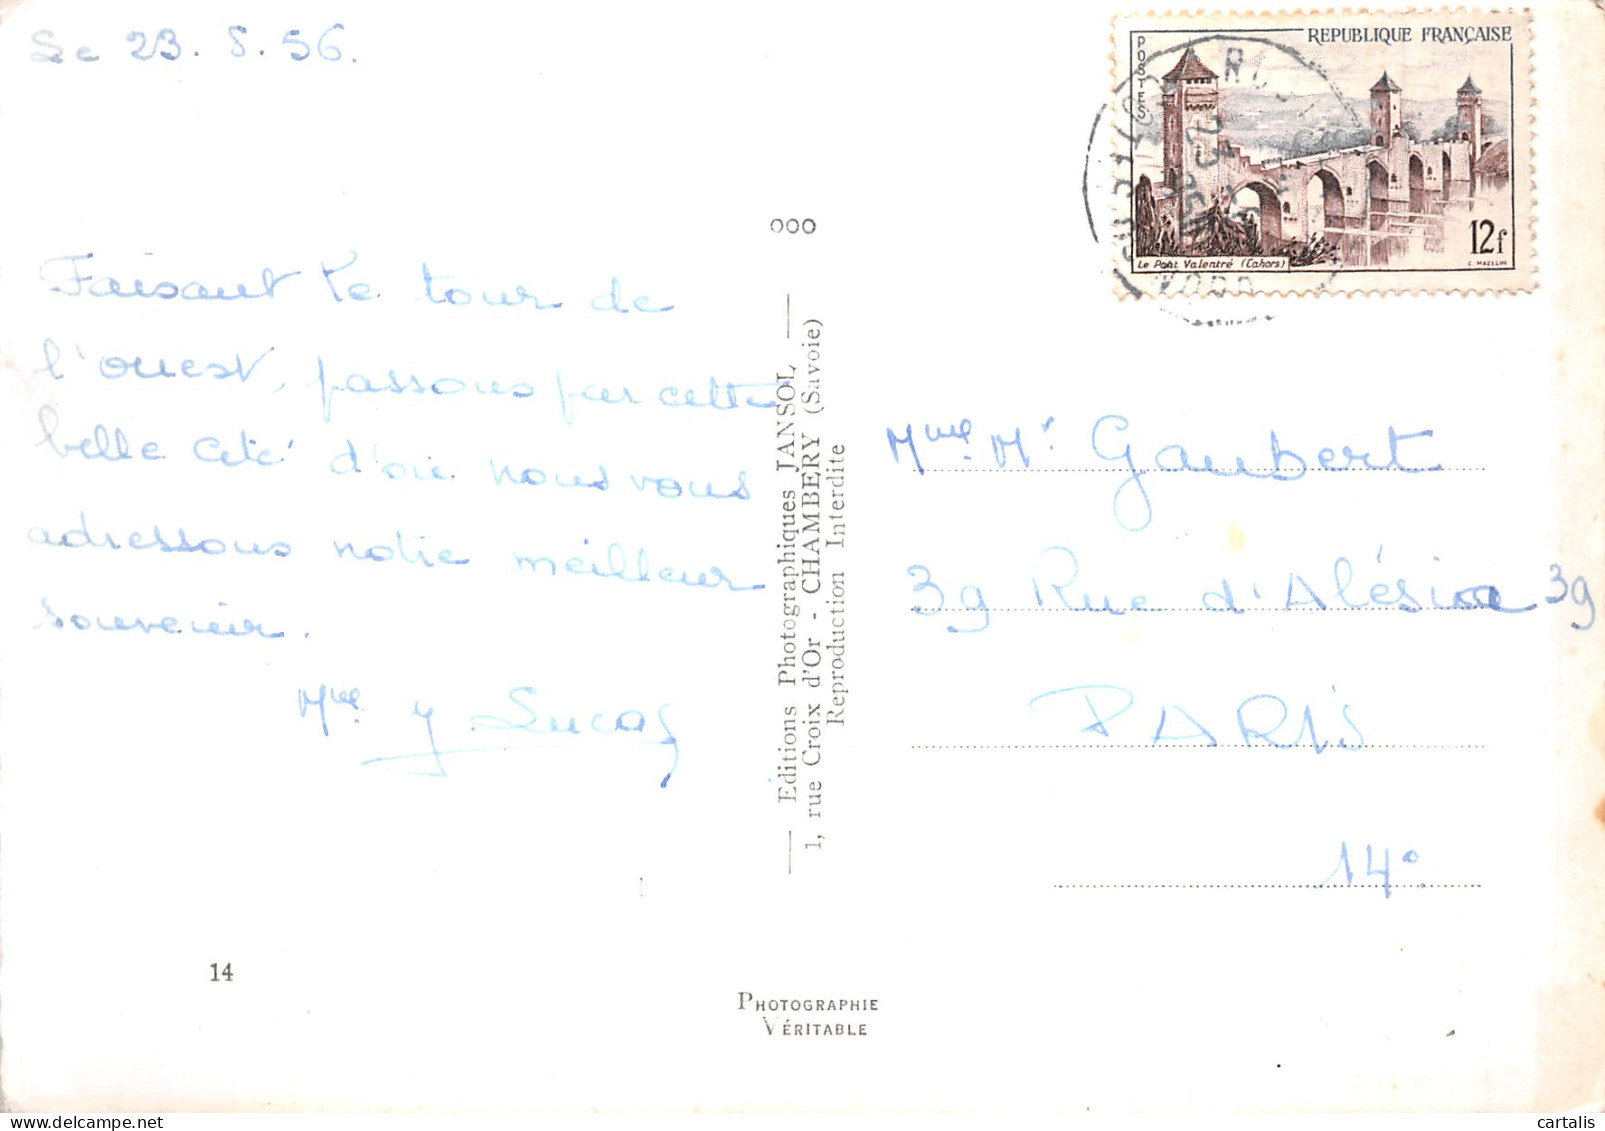 Le 23.8.56.
Faisant le tour de
l'ouest, passons par cette
belle cité d'oie nous vous
adressons notre meilleur
souvenir.
Mme Y Lucas
14
000
Editions Photographiques JANSOL
1, rue Croix d'Or - CHAMBERY (Savoie)
Reproduction Interdite
PHOTOGRAPHIE
VÉRITABLE
POSTES
REPUBLIQUE FRANÇAISE
12f
Le Pont Valentré (Cahors)
C. MAZELIN
Mme Mr Gaubert
39 Rue d'Alésia 39
PARIS
14e
cartalis